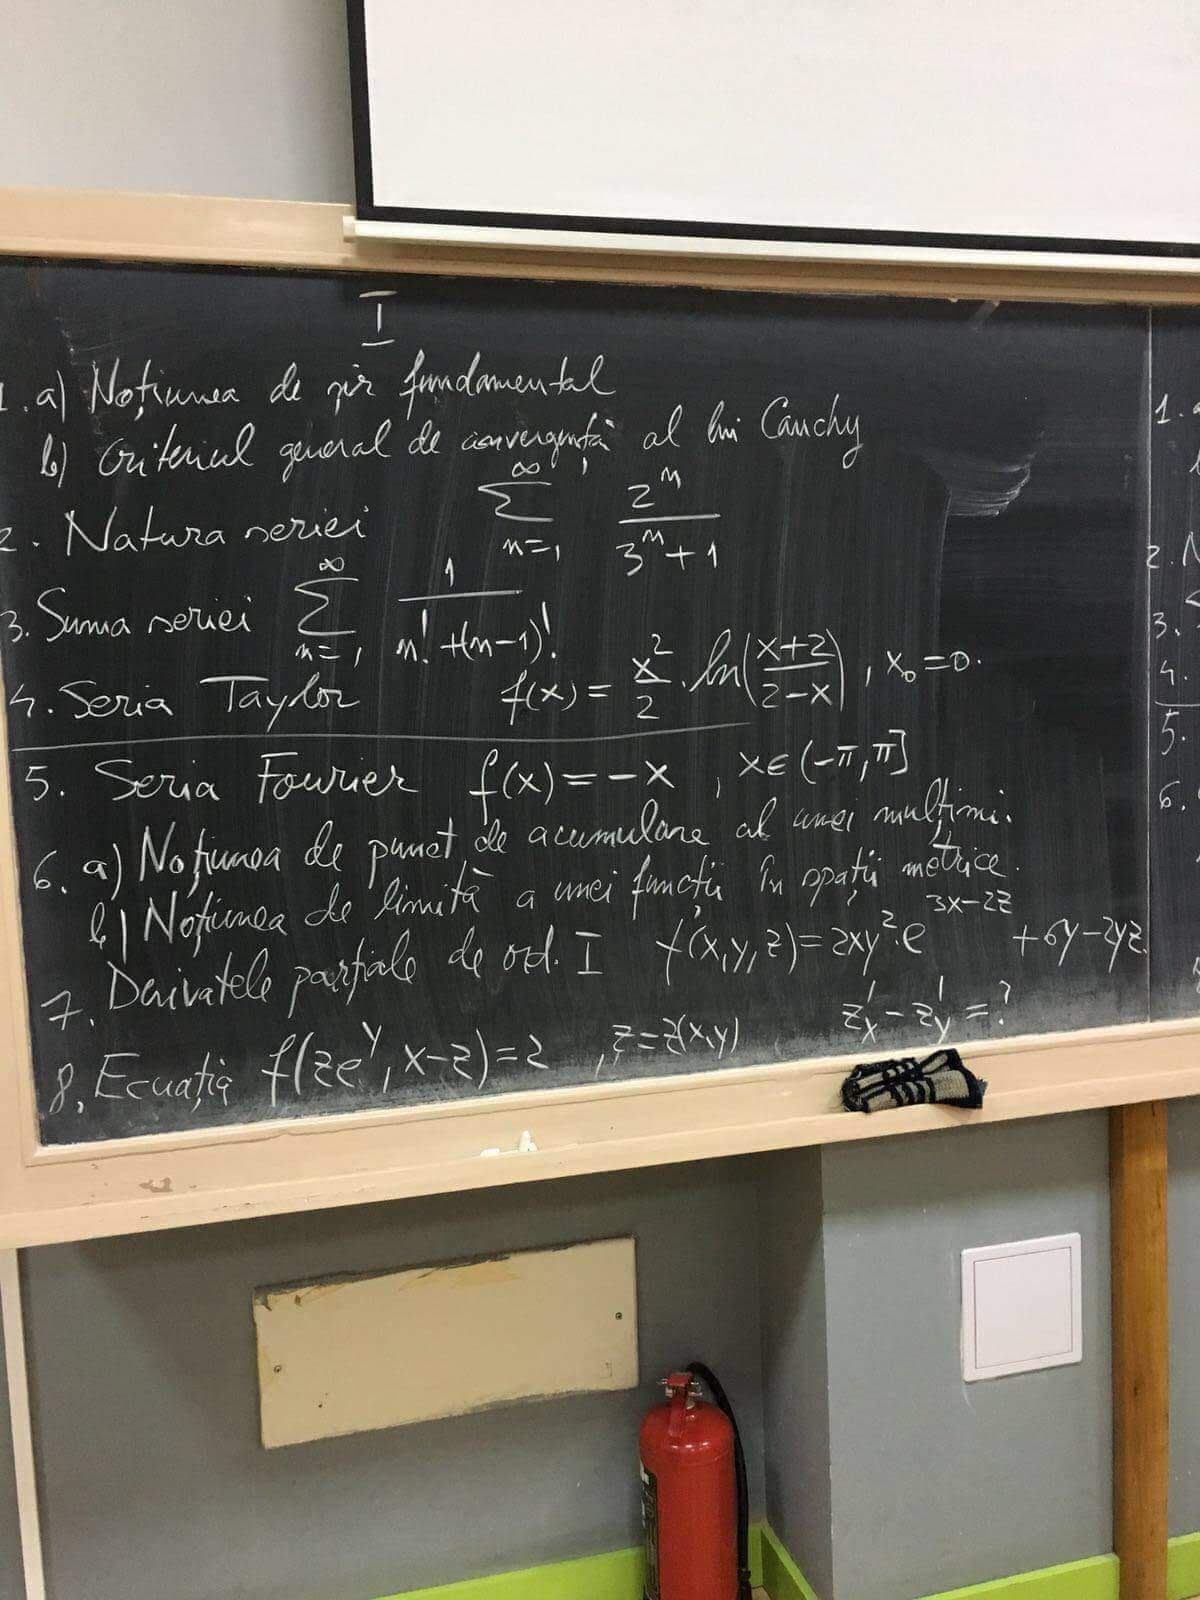 I
1. a) Noțiunea de șir fundamental
b) Criteriul general de convergență al lui Cauchy
2. Natura seriei ∑_{n=1}^{∞} 2^n / (3^n + 1)
3. Suma seriei ∑_{n=1}^{∞} 1 / (n! + (n-1)!)
4. Seria Taylor f(x) = x^2/2 · ln((x+2)/(2-x)), x_0 = 0.
5. Seria Fourier f(x) = -x, x ∈ (-π, π]
6. a) Noțiunea de punct de acumulare al unei mulțimi.
b) Noțiunea de limită a unei funcții în spații metrice.
7. Derivatele parțiale de ord. I f(x,y,z) = 2xy^2·e^{3x-2z} + 6y - 2yz.
8. Ecuația f(ze^y, x-z) = 2, z = z(x,y) z'_x - z'_y = ?
1.
2. N
3.
4.
5.
6.